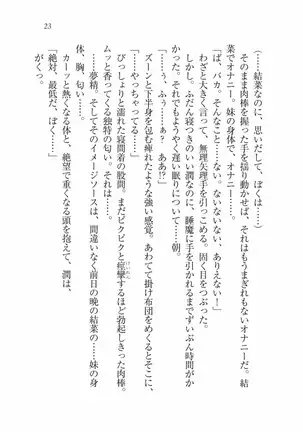 23
（……結菜なのに、思いだして、ぼくは……）
そのまま肉棒を握った手を揺り動かせば、それはもうまぎれもないオナニーだ。結
菜でオナニー。妹の身体で、オナニー……。
「ば、バカ。そんなこと……ない。ないない！」
わざと大きく言って、無理矢理手を引っこめる。固く目をつぶった。
しかし。ふだん寝つきのいい潤なのに、睡魔に手を引かれるまでずいぶん時間がか
かった。それでもようやく遅い眠りについて……朝。
「……う、ふぅ……ぁ？　ああ!?」
（……やっちゃってる……）
ズーンと下半身を包む痺れたような強い感覚。あわてて掛け布団をめくるとそこに、
びっしょりと濡れた寝間着の股間。まだピクピクと痙攣するほど勃起しきった肉棒。
ムッと香ってくる独特の匂い。それは……。
……夢精。そしてそのイメージソースは、間違いなく前日の晩の結菜の……妹の身
体、胸、匂い……。
カーッと熱くなる体と、絶望で重くなる頭を抱えて、潤は、
「絶対、最低だ、ぼく……」
がっくり。
けいれん